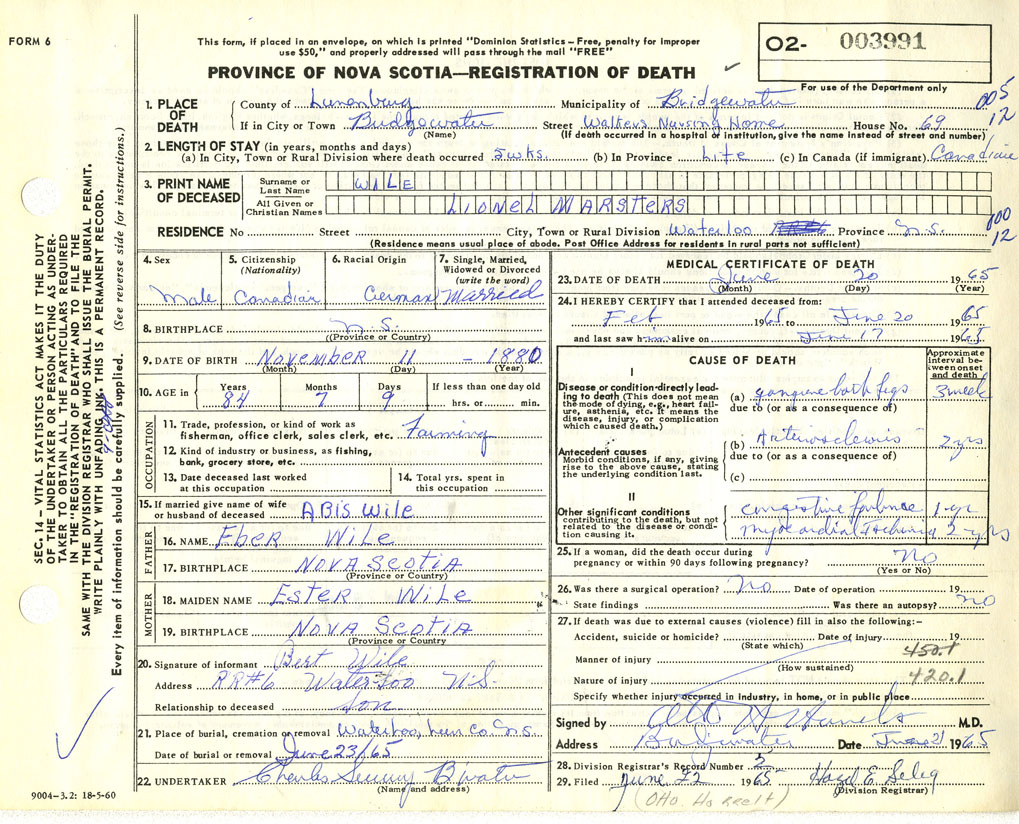 FORM 6
This form, if placed in an envelope, on which is printed "Dominion Statistics – Free, penalty for improper
use $50," and properly addressed will pass through the mail "FREE"
O2- 003991
For use of the Department only
PROVINCE OF NOVA SCOTIA—REGISTRATION OF DEATH
005
12
1. PLACE OF DEATH
County of Lunenburg Municipality of Bridgewater
If in City or Town Bridgewater Street Walters Nursing Home House No. 69
(Name) (If death occurred in a hospital or institution, give the name instead of street and number)
2. LENGTH OF STAY (in years, months and days)
(a) In City, Town or Rural Division where death occurred 5 wks. (b) In Province Life (c) In Canada (if immigrant) Canadian
3. PRINT NAME OF DECEASED
Surname or Last Name WILE
All Given or Christian Names LIONEL MARSTERS
RESIDENCE No Street City, Town or Rural Division Waterloo Province N.S.
100
12
(Residence means usual place of abode. Post Office Address for residents in rural parts not sufficient)
4. Sex Male
5. Citizenship (Nationality) Canadian
6. Racial Origin German
7. Single, Married, Widowed or Divorced (write the word) Married
8. BIRTHPLACE N.S.
((Province or Country)
9. DATE OF BIRTH November 11 - 1880
(Month) (Day) (Year)
10. AGE in Years 84 Months 7 Days 9 If less than one day old hrs. or min.
OCCUPATION
11. Trade, profession, or kind of work as fisherman, office clerk, sales clerk, etc. Farming
12. Kind of industry or business, as fishing, bank, grocery store, etc.
13. Date deceased last worked at this occupation
14. Total yrs. spent in this occupation
15. If married give name of wife or husband of deceased ABIS Wile
FATHER
16. NAME Eber Wile
17. BIRTHPLACE NOVA SCOTIA
(Province or Country)
MOTHER
18. MAIDEN NAME Ester Wile
19. BIRTHPLACE NOVA SCOTIA
(Province or Country
20. Signature of informant Bert Wile
Address RR#6 Waterloo N.S.
Relationship to deceased Son
21. Place of burial, cremation or removal Waterloo, Lun Co. N.S.
Date of burial or removal June 23/65
22. UNDERTAKER Charles B'water
(Name and address)
MEDICAL CERTIFICATE OF DEATH
23. DATE OF DEATH June 20 1965
(Month) (Day) (Year)
24. I HEREBY CERTIFY that I attended deceased from:
Feb 1965 to June 20 1965
and last saw him alive on June 17 1965
CAUSE OF DEATH
Approximate interval between onset and death
I
Disease or condition directly leading to death (This does not mean the mode of dying, e.g., heart failure, asthenia, etc. It means the disease, injury, or complication which caused death.)
(a) gangrene both legs 3 week
due to (or as a consequence of)
Antecedent causes
Morbid conditions, if any, giving rise to the above cause, stating the underlying condition last.
(b) 2 yrs
due to (or as a consequence of)
(c)
II
Other significant conditions contributing to the death, but not related to the disease or condition causing it.
congestive failure 1 yr
myocardial 2 yrs
25. If a woman, did the death occur during pregnancy or within 90 days following pregnancy? No
(Yes or No)
26. Was there a surgical operation? No Date of operation 19
State findings Was there an autopsy? no
27. If death was due to external causes (violence) fill in also the following:–
Accident, suicide or homicide? Date of injury 19
(State which) 450.1
Manner of injury
(How sustained)
Nature of injury 420.1
Specify whether injury occurred in industry, in home, or in public place
Signed by M.D.
Address Bridgewater Date June 21 1965
28. Division Registrar's Record Number
29. Filed June 22 1965 Hazel E. Seleg
(Division Registrar)
9004-3.2: 18-5-60
SEC. 14 – VITAL STATISTICS ACT MAKES IT THE DUTY
OF THE UNDERTAKER OR PERSON ACTING AS UNDER-
TAKER TO OBTAIN ALL THE PARTICULARS REQUIRED
IN THE "REGISTRATION OF DEATH" AND TO FILE THE
SAME WITH THE DIVISION REGISTRAR WHO SHALL ISSUE THE BURIAL PERMIT.
WRITE PLAINLY WITH UNFADING INK, THIS IS A PERMANENT RECORD.
Every item of information should be carefully supplied. (See reverse side for instructions.)